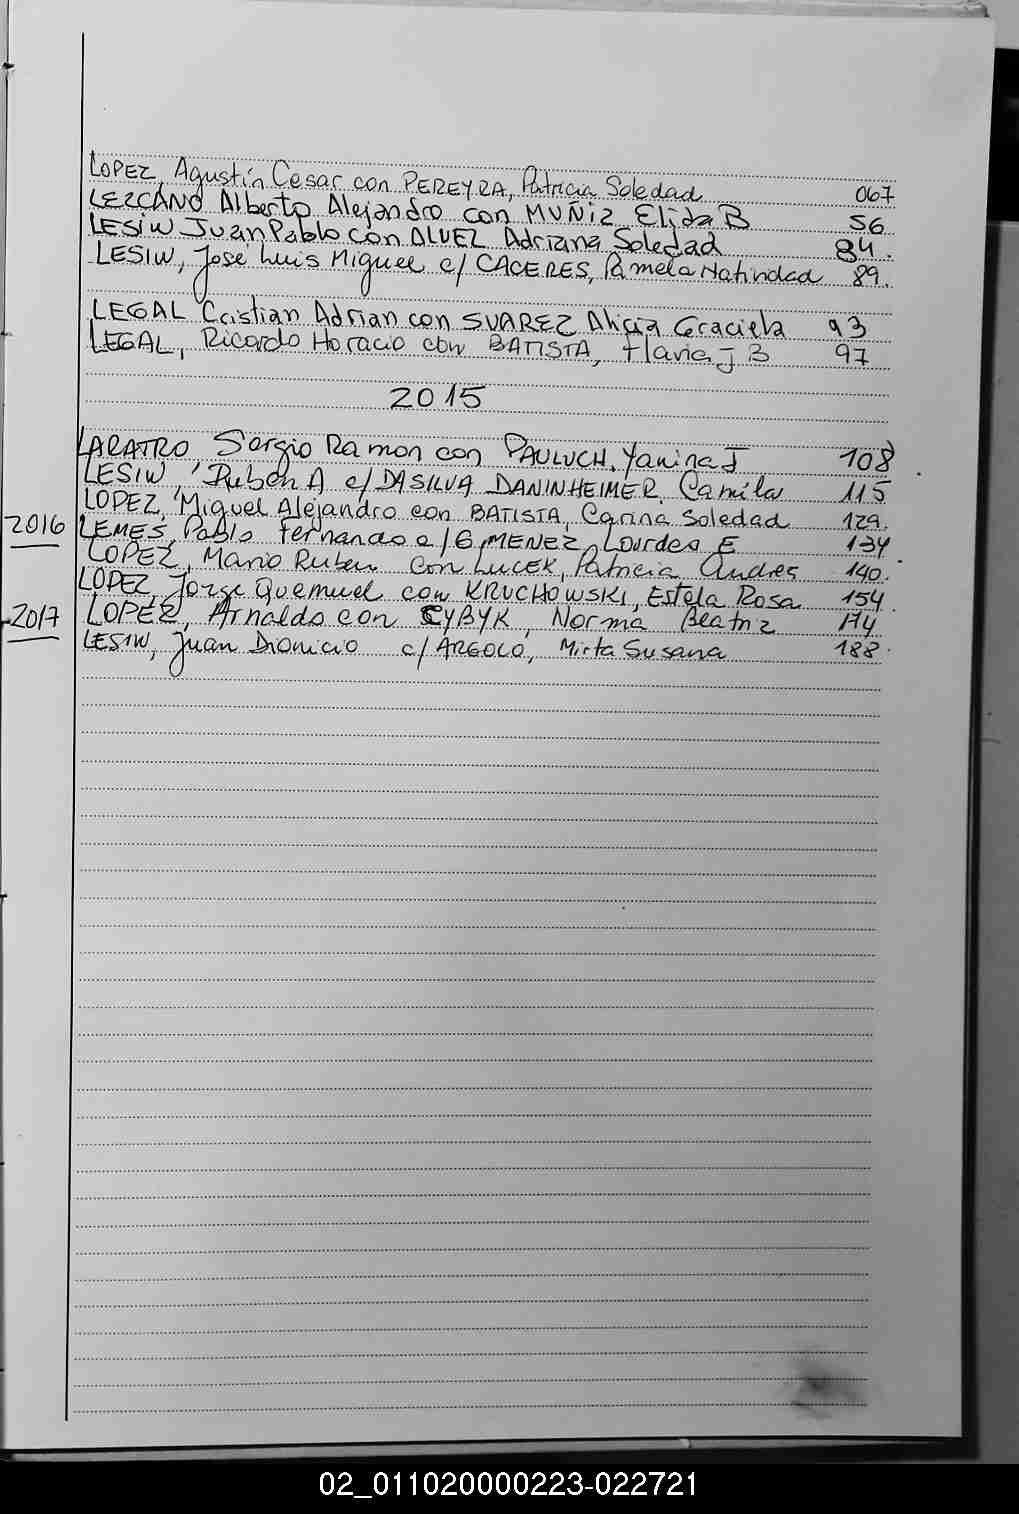 LOPEZ, Agustín Cesar con PEREYRA, Patricia Soledad 067
LEZCANO Alberto Alejandro con MUÑIZ Elida B 56
LESIW Juan Pablo con ALVEZ Adriana Soledad 84.
LESIW, Jose Luis Miguel c/ CACERES, Pamela Natividad 89.
LEGAL Cristian Adrian con SUAREZ Alicia Graciela 93
LEGAL, Ricardo Horacio con BATISTA, Flavia J B 97
2015
LARATRO, Sergio Ramon con PAULUCH, Yanina J 108
LESIW, Ruben A c/ DASILVA DANINHEIMER, Camila 115
LOPEZ, Miguel Alejandro con BATISTA, Carina Soledad 129.
2016 LEMES, Pablo Fernando c/ GIMENEZ, Lourdes E 134
LOPEZ, Mario Ruben con LUCEK, Patricia Andrea 140.
LOPEZ, Jorge Quemuel con KRUCHOWSKI, Estela Rosa 154.
2017 LOPEZ, Arnaldo con CYBYK, Norma Beatriz 174
LESIW, Juan Dionicio c/ ARGOLO, Mirta Susana 188.
02_011020000223-022721